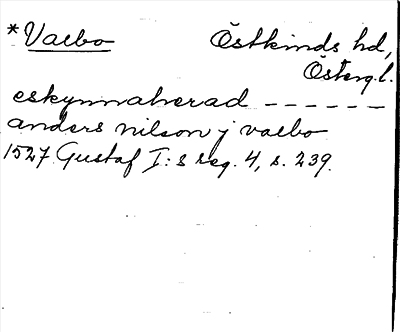 *Valbo Östkinds hd,
Österg.l.
eskynnaherad ------
anders nilson j valbo
1527 Gustaf I:s reg. 4, s. 239.